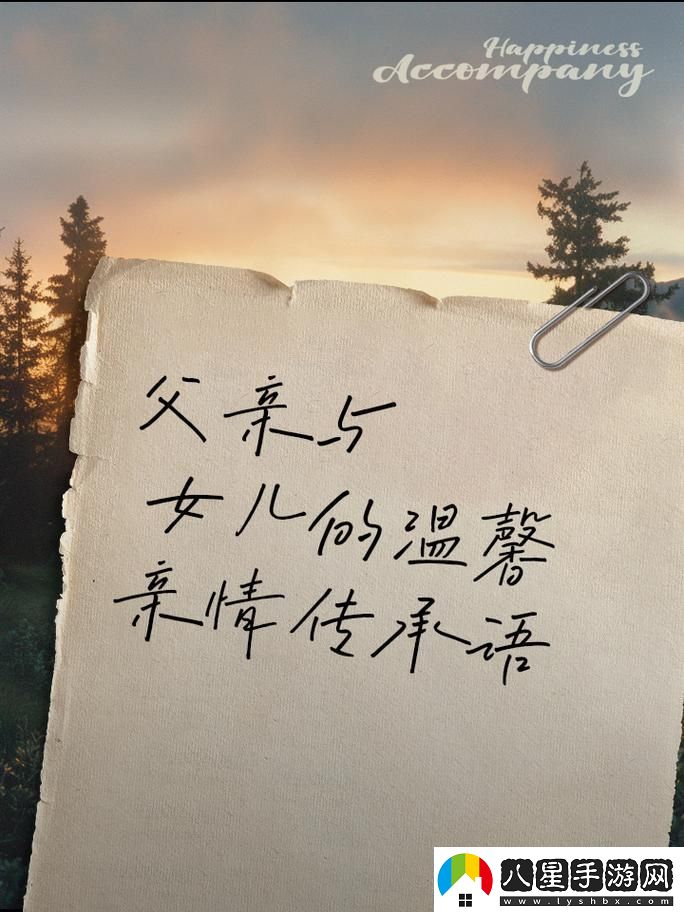 Happiness
Accompany
父亲与
女儿的温馨
亲情传承语
八星手游网
www.lyshbx.com